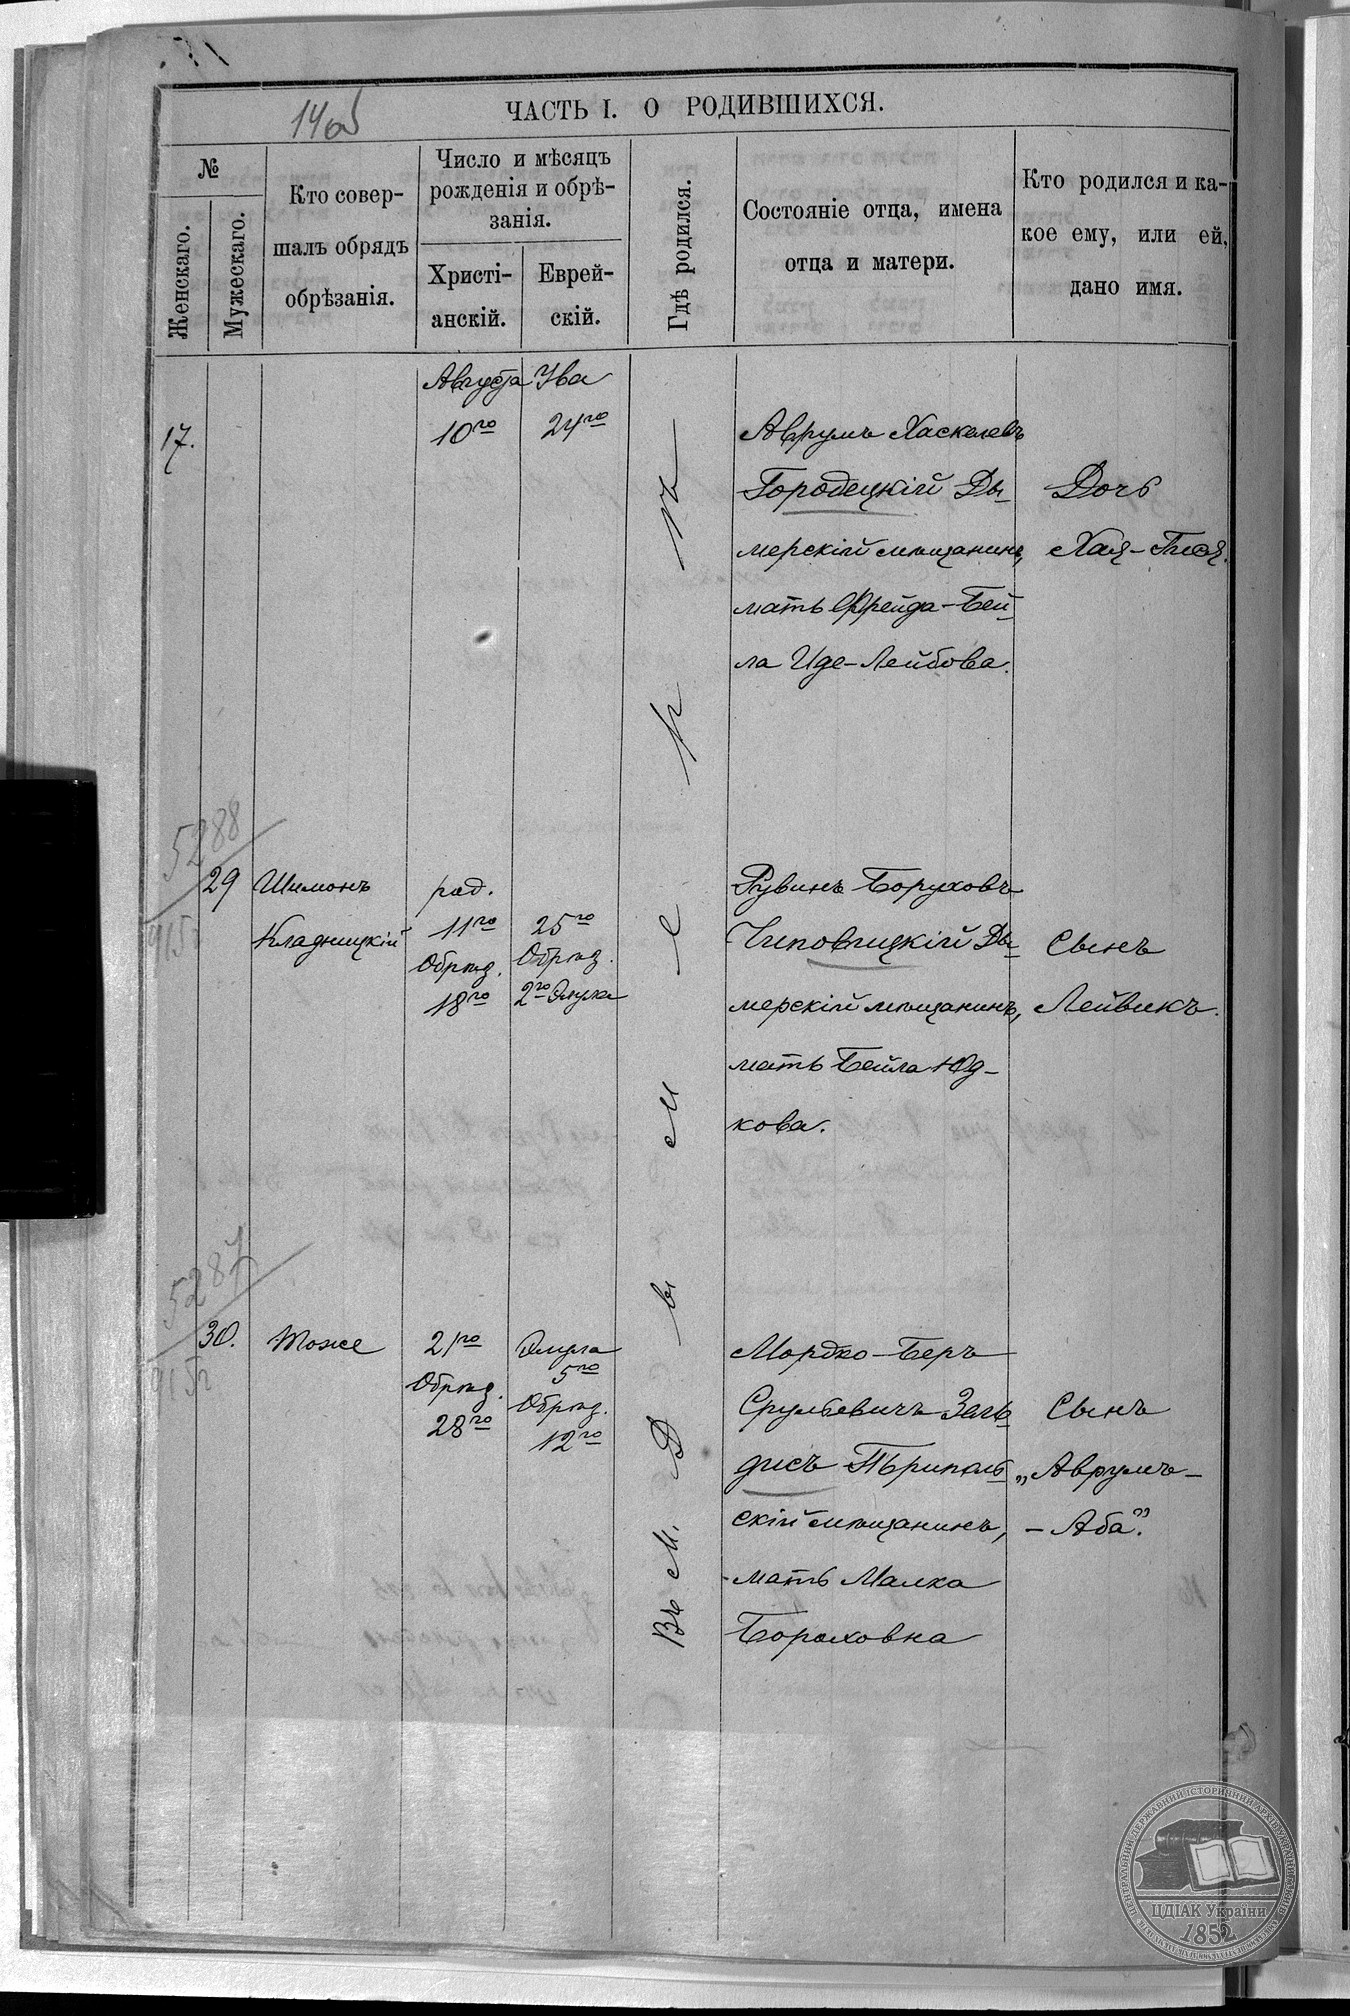 14об
ЧАСТЬ I. О РОДИВШИХСЯ.
№
Женскаго.
Мужескаго.
Кто совер-
шалъ обрядъ
обрѣзанія.
Число и мѣсяцъ
рожденія и обрѣ-
занія.
Христі-
анскій.
Еврей-
скій.
Гдѣ родился.
Состояніе отца, имена
отца и матери.
Кто родился и ка-
кое ему, или ей,
дано имя.
Августа Ува
17.
10го
24го
Аврумъ Хаскелевъ
Городецкій Ды-
мерскій мѣщанинъ,
мать Фрейда-Бей-
ла Иде-Лейбова.
Дочь
Хая-Гися.
Въ М. Дымерѣ
5288
915г
29
Шимонъ
Кладницкій
род.
11го
Обрѣз.
18го
25го
Обрѣз.
2го Элула
Рувинъ Боруховъ
Чиповецкій Ды-
мерскій мѣщанинъ,
мать Бейла Юд-
кова.
Сынъ
Лейвикъ.
5287
915г
30.
Тоже
21го
Обрѣз.
28го
Элула
5го
Обрѣз.
12го
Мордко-Беръ
Срульевичъ Заль-
дисъ Трипол-
скій мѣщанинъ,
мать Малка
Бороховна
Сынъ
„Аврумъ-
-Аба".
ЦЕНТРАЛЬНИЙ ДЕРЖАВНИЙ ІСТОРИЧНИЙ АРХІВ УКРАЇНИ
ЦДІАК України
1852